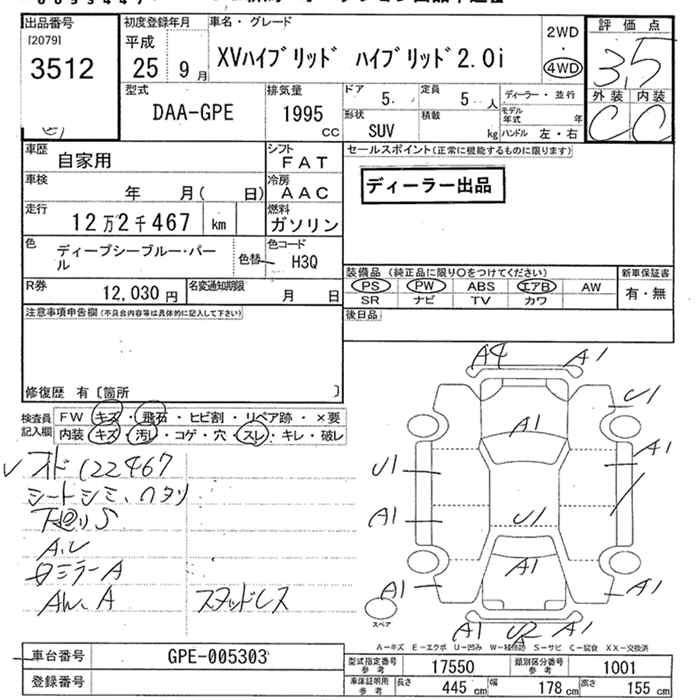 出品番号
[2079]
3512
初度登録年月
平成
25 9月
車名・グレード
XVハイブリッド ハイブリッド2.0i
2WD
・
4WD
評価点
3.5
外装 内装
C C
型式
DAA-GPE
排気量
1995
cc
ドア
5
定員
5 人
形状
SUV
積載
kg
ディーラー・並行
モデル年式 年
ハンドル 左・右
車歴
自家用
シフト
FAT
車検
年 月( 日)
冷房
AAC
走行
12万2千467 km
燃料
ガソリン
色
ディープシーブルー・パール
色替
色コード
H3Q
R券
12,030 円
名変通知期限
月 日
セールスポイント(正常に機能するものに限ります)
ディーラー出品
装備品(純正品に限り○をつけてください)
PS PW ABS エアB AW
SR ナビ TV カワ
新車保証書
有・無
後日品
注意事項申告欄(不具合内容等は具体的に記入して下さい)
修復歴 有〔箇所 〕
検査員記入欄
FW キズ・飛石・ヒビ割・リペア跡・×要
内装 キズ・汚れ・コゲ・穴・スレ・キレ・破レ
オド122467
シートシミ、ヘタリ
下廻りS
A.U
ミラーA
AW.A
スタッドレス
A4 A1
U1
A1
A1
U1
A1
U1
A1
A1
A1
A1 U2 A1
スペア
A-キズ E-エクボ U-凹み W-補修跡 S-サビ C-腐食 XX-交換済
車台番号
GPE-005303
登録番号
型式指定番号 参考
17550
類別区分番号 参考
1001
車体証明用 参考
長さ 445 cm
幅 178 cm
高さ 155 cm